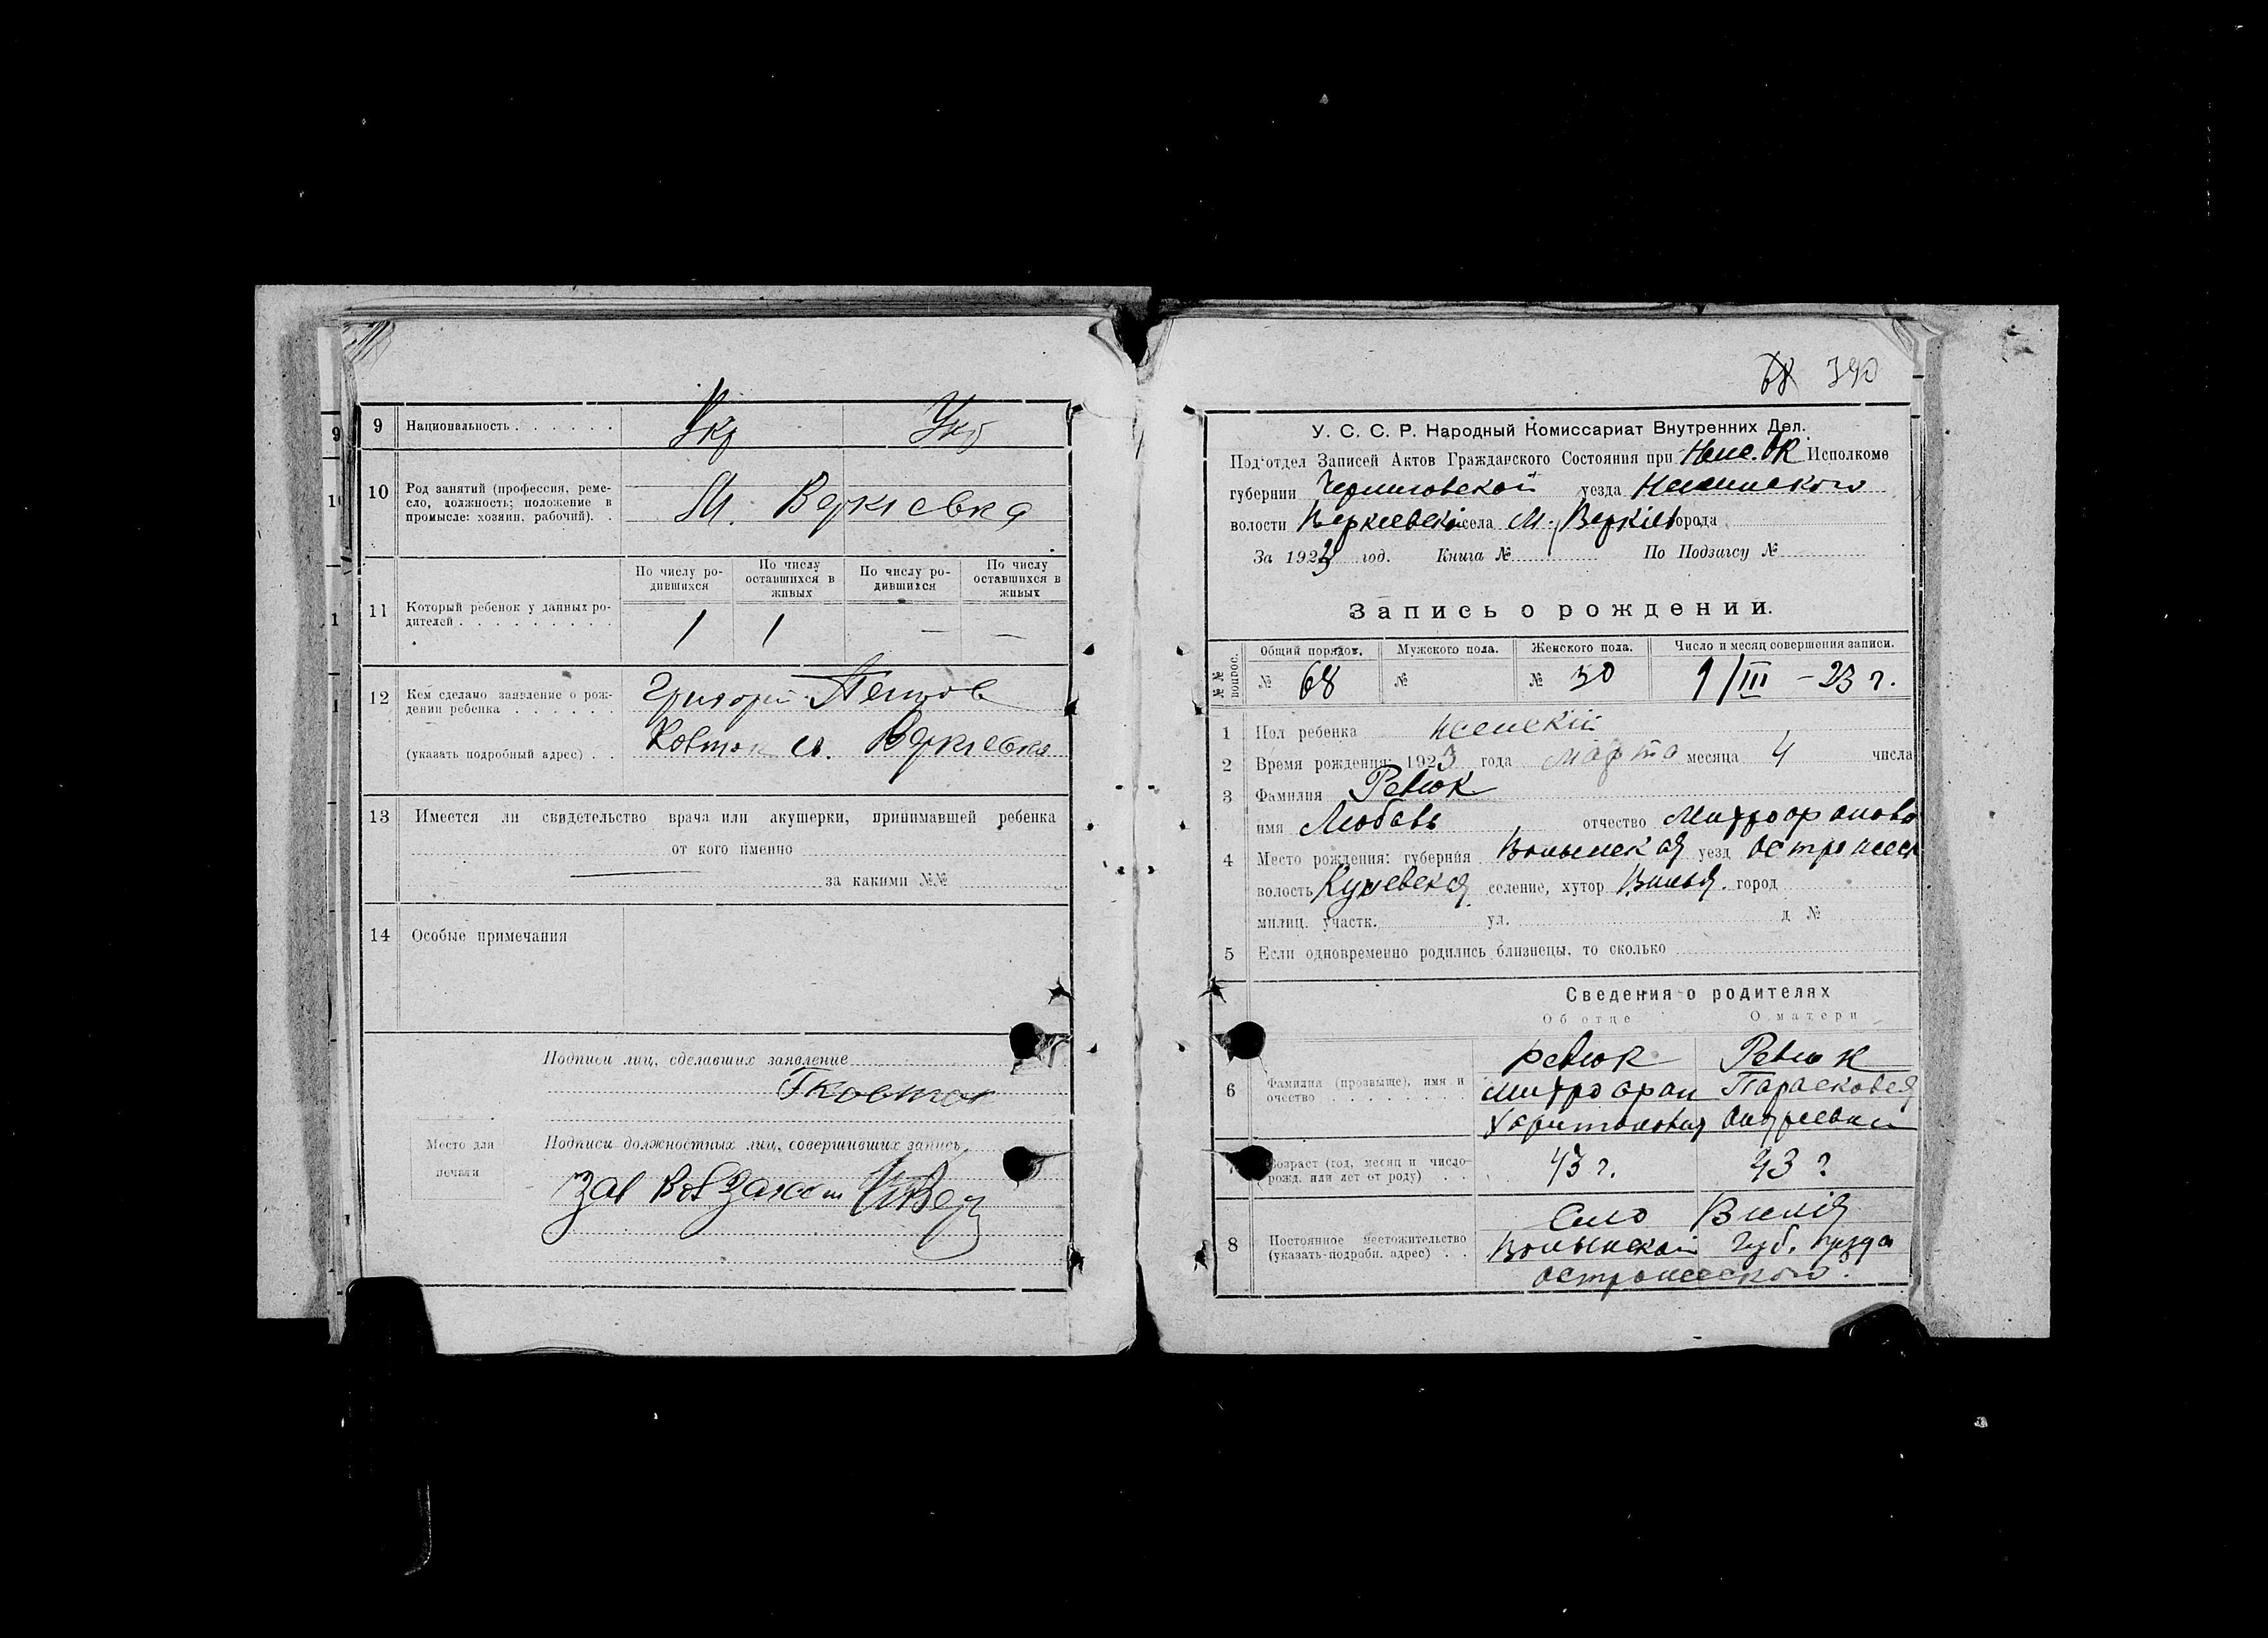 9 Национальность . . . . . . Укр Укр
10 Род занятий (профессия, реме-
сло, должность; положение в
промысле: хозяин, рабочий). . М. Веркіевка
По числу ро-
дившихся
По числу
оставшихся в
живых
По числу ро-
дившихся
По числу
оставшихся в
живых
11 Который ребенок у данных ро-
дителей . . . . . . . . . 1 1 — —
12 Кем сделано заявление о рож-
дении ребенка . . . . . . Григорій
(указать подробный адрес) . . Ковтюк м. Веркіевка
13 Имеется ли свидетельство врача или акушерки, принимавшей ребенка
от кого именно
за какими №№
14 Особые примечания
Подписи лиц, сделавших заявление
Г Ковтюк
Место для
печати
Подписи должностных лиц, совершивших запись
Зав
68 390
У. С. С. Р. Народный Комиссариат Внутренних Дел.
Под‘отдел Записей Актов Гражданского Состояния при Неж. ОК Исполкоме
губернии Черниговской уезда Неженского
волости Веркіевскі села М. Веркіев города
За 1923 год. Книга № По Подзагсу №
Запись о рождении.
№№ вопрос.
Общий порядок. Мужского пола. Женского пола. Число и месяц совершения записи.
№ 68 № № 30 9/III – 23 г.
1 Пол ребенка женскій
2 Время рождения: 1923 года марта месяца 4 числа
3 Фамилия Ревюк
имя Любовь отчество Митрофанов
4 Место рождения: губерния Волынская уезд Острожеск
волость Куневская селение, хутор Вилья. город
милиц. участк. ул. д №
5 Если одновременно родились близнецы, то сколько
Сведения о родителях
Об отце О матери
Ревюк Ревюк
6 Фамилия (прозвыще), имя и
очество . . . . . . . . Митрофан Парасковея
Харитонович Андреевна
Возраст (год, месяц и число
рожд. или лет от роду) . . 43 г. 43 г
Село Вилія
8 Постоянное местожительство
(указать подробн. адрес) . . Волынской Губ. Уезда
Острожеского.